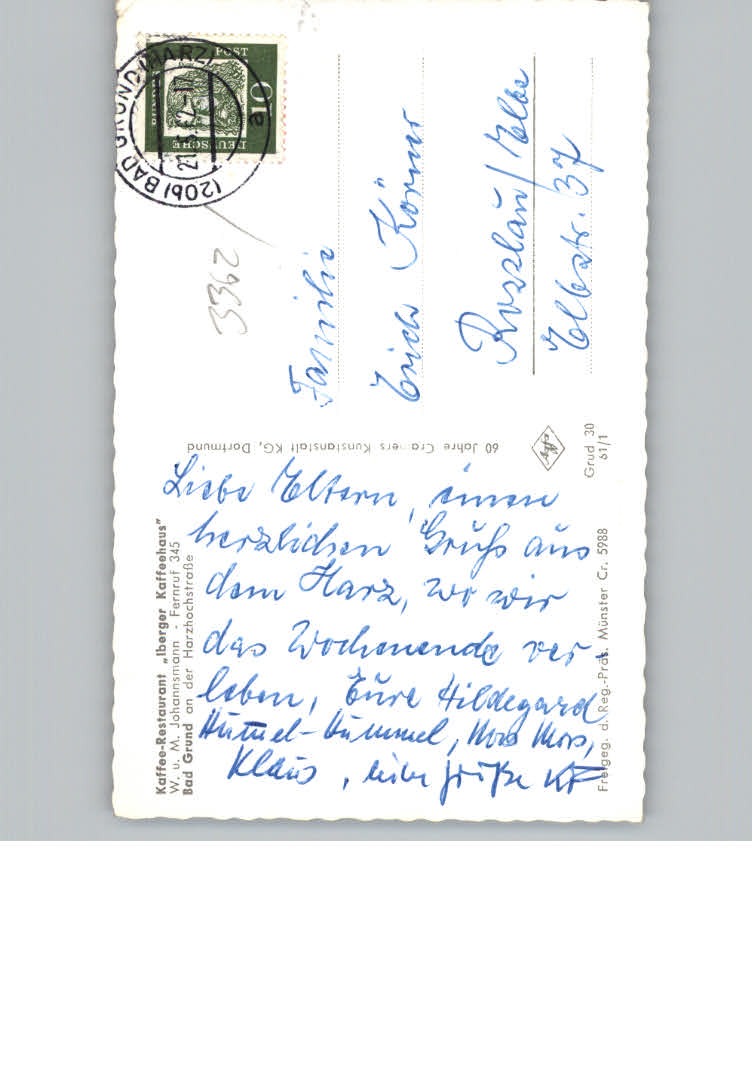 Kaffee-Restaurant „Iberger Kaffeehaus"
W. u. M. Johannsmann - Fernruf 345
Bad Grund an der Harzhochstraße
Liebe Eltern, einen
herzlichen Gruß aus
dem Harz, wo wir
das Wochenende ver
leben, Eure Hildegard
Hummel-Hummel, Mors Mors,
Klaus, liebe Grüße
60 Jahre Cramers Kunstanstalt KG, Dortmund
Freigeg. d. Reg.-Präs. Münster Cr. 5988
Grud 30
61/1
DEUTSCHE
BUNDES
POST
10
(20b) BAD GRUND (HARZ)
a
3362
Familie
Erich Körner
Rosslau/Elbe
Elbstr. 37